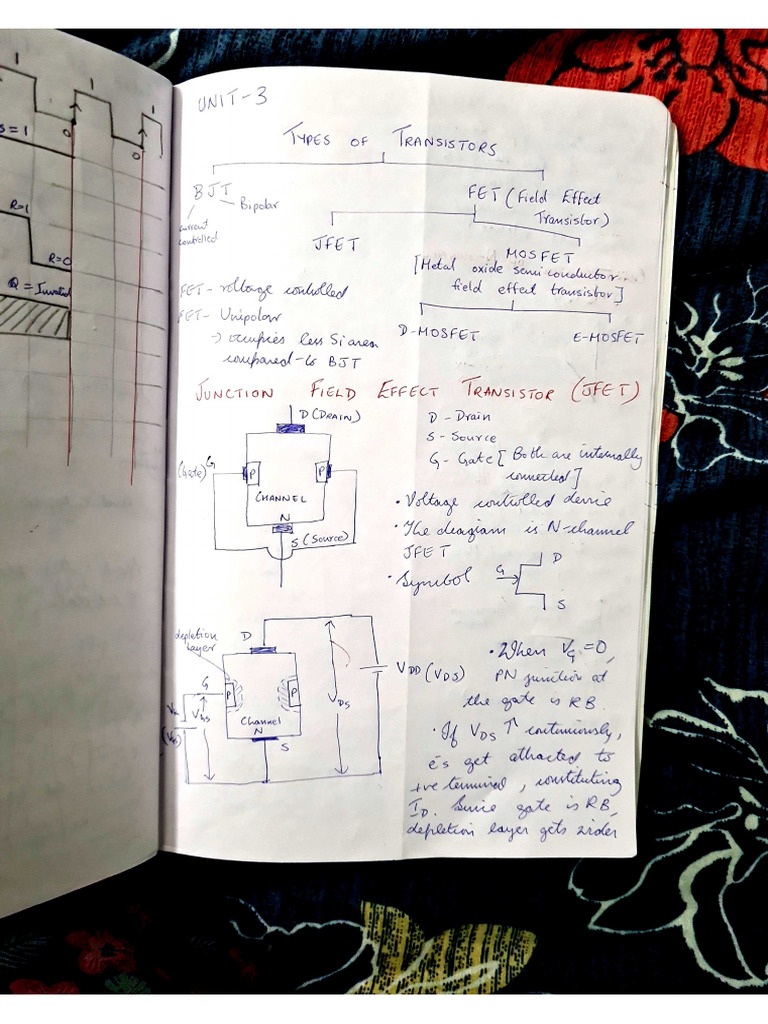 1
1
1
S=1
0
0
R=1
R=0
Q = Invalid
UNIT-3
TYPES OF TRANSISTORS
BJT
Bipolar
current
controlled
FET (Field Effect
Transistor)
JFET
MOSFET
[Metal oxide semiconductor
field effect transistor]
D-MOSFET
E-MOSFET
FET - voltage controlled
FET - Unipolar
→ occupies less Si area
compared to BJT
JUNCTION FIELD EFFECT TRANSISTOR (JFET)
D (DRAIN)
(Gate) G
P
P
CHANNEL
N
S (Source)
D - Drain
S - Source
G - Gate [Both are internally
connected]
• Voltage controlled device
• The diagram is N-channel
JFET
• Symbol
G
D
S
depletion
layer
D
G
P
P
Channel
N
S
VGS
VDS
VDD (VDS)
• When VG = 0,
PN junction at
the gate is RB.
• If VDS ↑ continuously,
e's get attracted to
+ve terminal, constituting
ID. Since gate is RB,
depletion layer gets wider